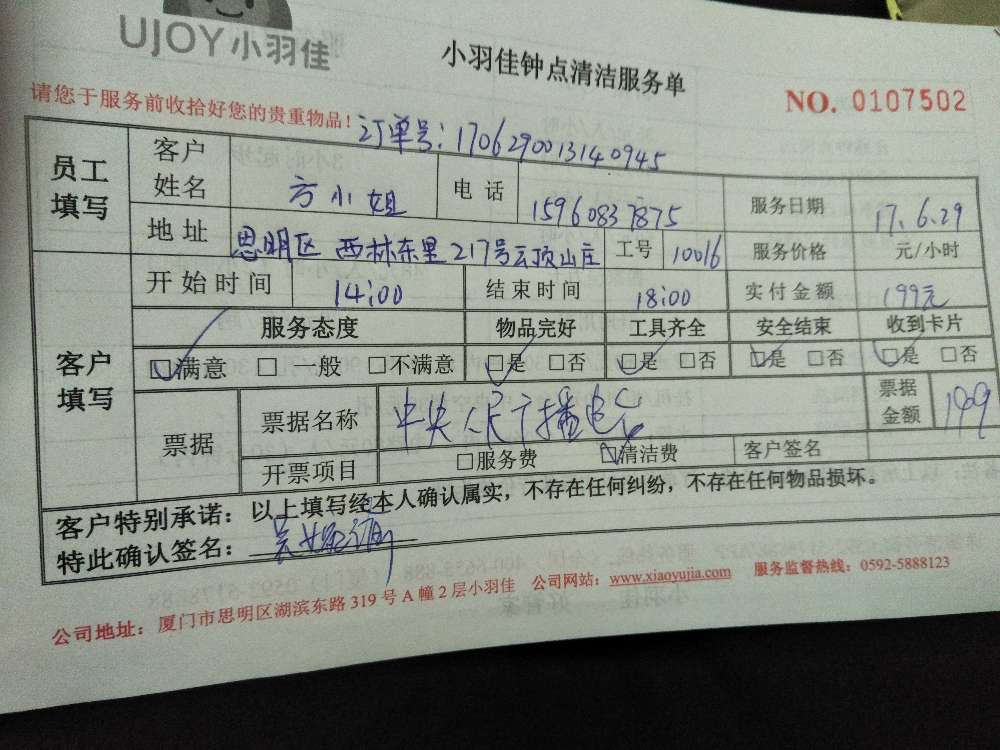 UJOY小羽佳
小羽佳钟点清洁服务单
请您于服务前收拾好您的贵重物品！
NO. 0107502
订单号：1706290013140945
员工填写 客户姓名 方小姐 电话 15960837875 服务日期 17.6.29
地址 思明区 西林东里217号云顶山庄 工号 10016 服务价格 元/小时
客户填写 开始时间 14:00 结束时间 18:00 实付金额 199元
服务态度 物品完好 工具齐全 安全结束 收到卡片
☑满意 □一般 □不满意 ☑是 □否 ☑是 □否 ☑是 □否 ☑是 □否
票据 票据名称 中央人民广播电台 票据金额 199
开票项目 □服务费 ☑清洁费 客户签名
客户特别承诺：以上填写经本人确认属实，不存在任何纠纷，不存在任何物品损坏。
特此确认签名：
公司地址：厦门市思明区湖滨东路319号A幢2层小羽佳 公司网站：www.xiaoyujia.com 服务监督热线：0592-5888123